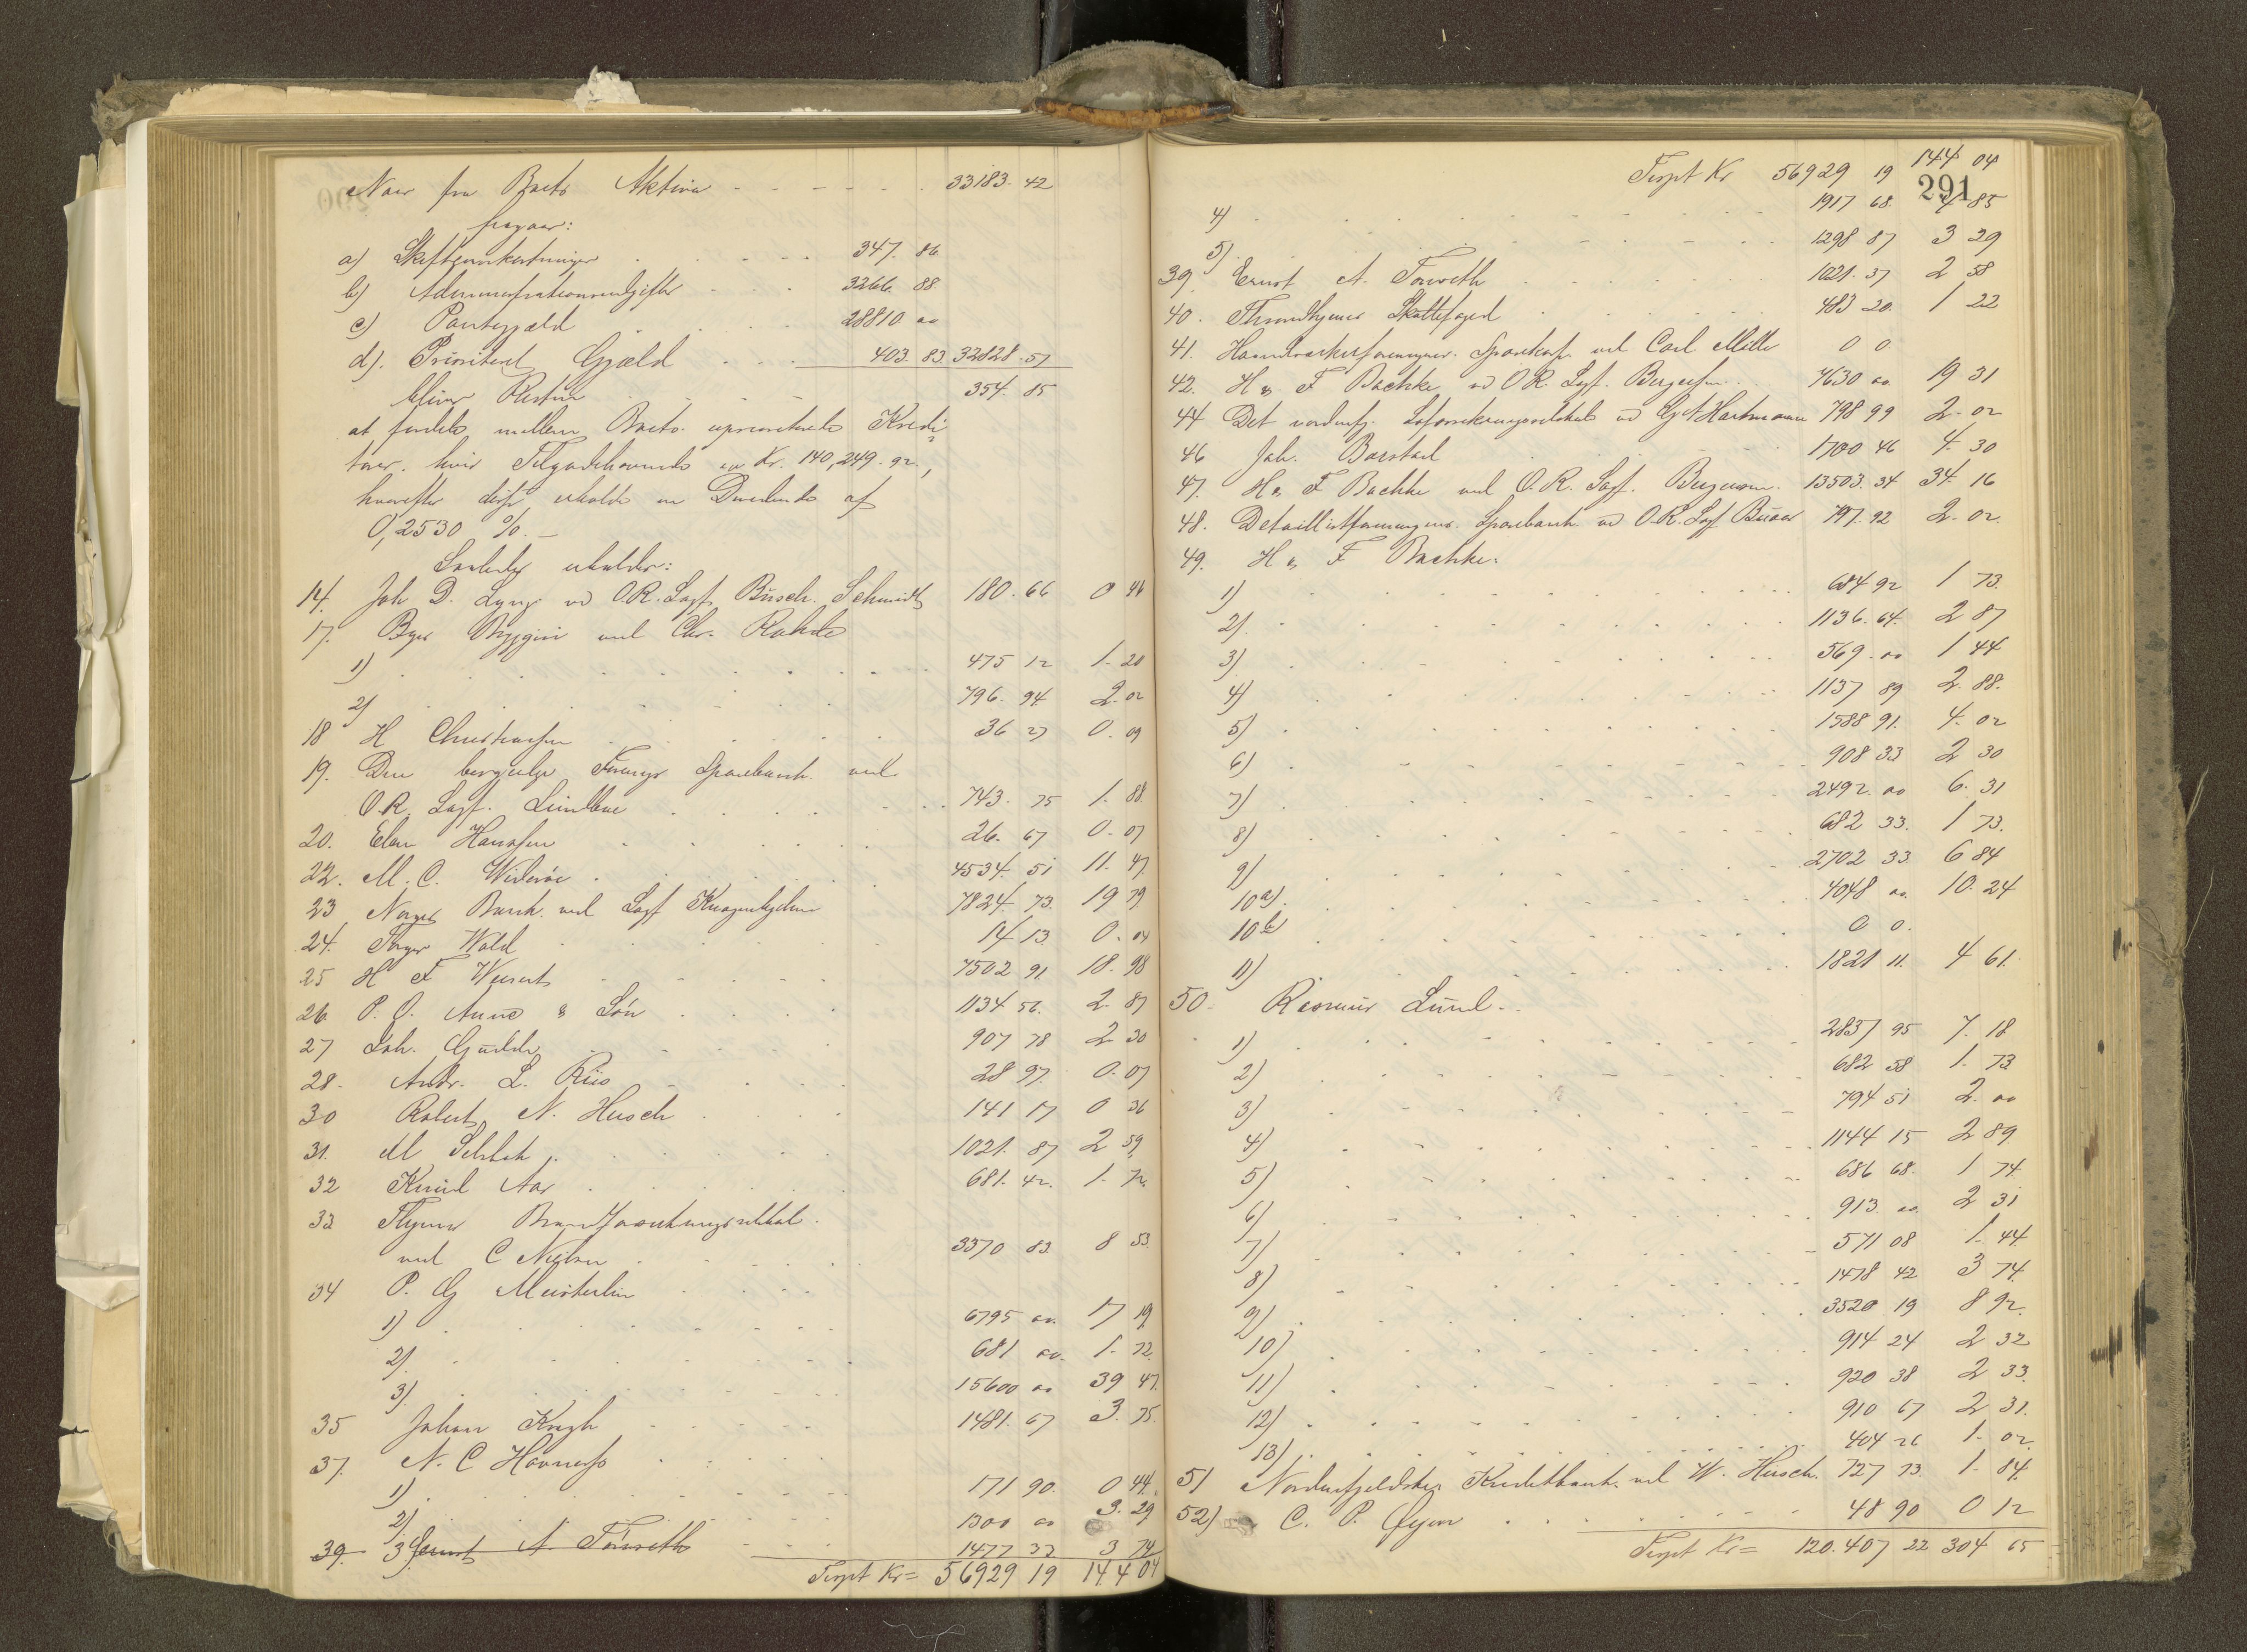 Naar fra Boets Aktiva 33183. 42
fragaar:
a) Skifteomkostninger 347. 86
b) Administrationsudgifter 3266. 88
c) Pantegjæld 28810 00
d). Prioritert Gjæld 403. 83. 32828. 57
bliver Resten 354. 85
at fordele mellem Boets uprioriterte Kredi-
torer, hvis Tilgodehavende er Kr. 140,249. 92,
hvorefter disse erholde en Dividende af
0,2530 %. -
Saaledes erholder:
14. Joh D. Lyng ved O.R. Sagf. Busch. Schmidt 180. 66 0 46
17. Byes Bryggeri ved Chr. Rohde
1) 475 12 1. 20
2) 796. 94. 2. 02
18 H Christiansen 36 27 0. 09
19. Den borgerlige Forenings Sparebank ved
O.R. Sagf. Lundtue 743. 75 1. 88.
20. Elen Hansen 26. 67 0. 07
22. M. C. Widerøe 4534. 51 11. 47.
23 Norges Bank ved Sagf 7824. 73. 19 79
24. Wold 14 13. 0. 04
25 H F 7502 91 18. 98
26 P. O. Aune & Søn 1134 56. 2. 87
27 Joh. 907 78 2 30
28. Andr. L. Riis 28 97. 0. 07
30 Robert N. Husch 141 17 0 36
31. M 1021. 87 2 59
32 Knud Aas 681. 42. 1. 72.
33 Thjems Brandforsikringsselskab
ved C Nielsen 3370 83. 8 53.
34 P. G Meisterlin
1) 6795 00. 17 19
2) 681 00. 1. 72.
3) 15600 00 39 47.
35 Johan Krogh 1481. 67 3. 75.
37. N. C Havnerss
1) 171 90. 0 44.
2) 1300 00 3. 29
39. 3) Ernst A. Torseth 1477 33 3 74
Trspt Kr= 56929 19 144 04
Trspt Kr 56929 19 144 04
291
4) 1917 68. 4 85
5) 1298 87 3 29
39. Ernst A. Torseth 1021. 37 2 58
40. Throndhjems Skattefoged 483 20. 1 22
41. Haandværkerforeningens Sparekasse ved Carl Mille 0 0
42. H & F Bachke ved O.R. Sagf. Bergersen 7630 00. 19 31
44 Det nordenfj. Livforsikringsselskab ved G A Hartmann 798 99 2. 02
46 Joh. Borstad 1700 46 4. 30
47. H & F Bachke ved O.R. Sagf. Bergersen. 13503. 34 34. 16
48. Detaillistforeningens Sparebank ved O.R. Sagf 797. 92 2. 02.
49. H & F Bachke.
1) 684 92 1 73.
2) 1136. 64. 2 87
3) 569. 00 1 44
4) 1137 89 2. 88.
5) 1588 91. 4. 02
6) 908 33 2 30
7) 2492. 00 6. 31
8) 682 33. 1 73.
9) 2702 33. 6 84
10a) 4048 00. 10. 24
10b) 0 0.
11) 1821 11. 4 61.
50. Rasmus Lund.
1) 2837 95 7. 18
2) 682 58 1. 73
3) 794 51 2. 00
4) 1144 15 2 89
5) 686 68. 1 74.
6) 913 00. 2 31
7) 571 08 1. 44
8) 1478 42 3 74.
9) 3520 19 8 92.
10) 914 24 2 32
11) 920 38 2 33.
12) 910 67 2 31.
13) 404 26 1. 02.
51 Nordenfjeldske Kreditbank ved W. Husch. 727 73. 1. 84.
52) C. P. Øyen 48 90 0 12
Trspt Kr= 120. 407 22 304 65